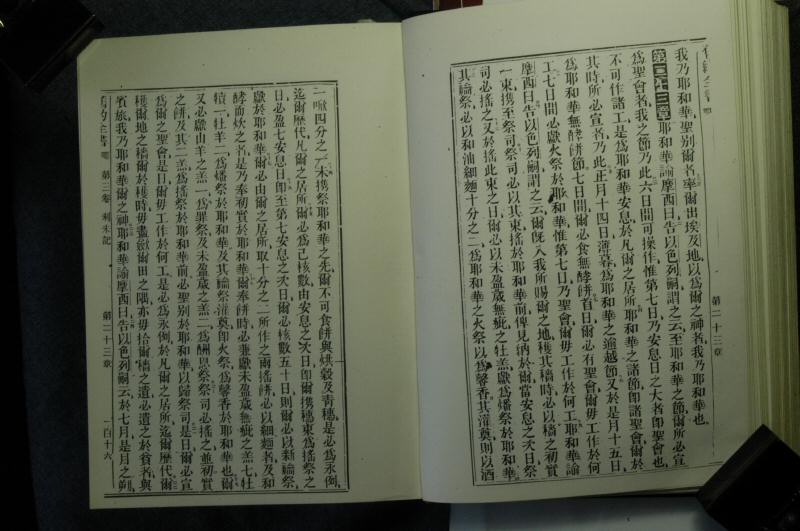 舊約全書
我乃耶和華聖別爾者率爾出埃及地以爲爾之神者我乃耶和華也
第二十三章耶和華諭摩西曰告以色列嗣謂之云至耶和華之節爾所必宣
爲聖會者我之節乃此六日間可操作惟第七日乃安息日之大者即聖會也
不可作諸工是爲耶和華安息於凡爾之居所耶和華之諸節即諸聖會爾於
其時所必宣者乃此正月十四日薄暮爲耶和華之逾越節又於是月十五日
爲耶和華無酵餅節七日間爾必食無酵餅首日爾必有聖會爾毋工作於何
工七日間必獻火祭於耶和華惟第七日乃聖會爾毋工作於何工耶和華諭
摩西曰告以色列嗣謂之云爾既入我所賜爾之地穫其穡時必以穡之初實
一束攜至祭司祭司必以其束搖於耶和華前俾見納於爾當安息之次日祭
司必搖之又於搖此束之日爾必以未盈歲無疵之牡羔獻爲燔祭於耶和華
其諭祭必以和油細麵十分之二爲耶和華之火祭以爲馨香其灌奠則以酒
第二十三章
一㗖四分之一未攜祭耶和華之先爾不可食餅與烘穀及靑穗是必爲永例
迄爾歷代凡爾之居所爾必爲己核數由安息之次日即爾攜穗束爲搖祭之
日必盈七安息日即至第七安息之次日爾必核數五十日則爾必以新諭祭
獻於耶和華爾必由爾之居所取十分之二所作之兩搖餅必以細麵者及和
酵而炊之者是乃奉初實於耶和華爾奉餅時必兼獻未盈歲無疵之羔七牡
犢一牡羊二爲燔祭於耶和華及其諭祭灌奠即火祭爲馨香於耶和華也爾
又必獻山羊之羔一爲罪祭及未盈歲之羔二爲酬恩祭祭司必搖之並初實
之餅及其二羔爲搖祭於耶和華前必聖別於耶和華以歸祭司是日爾必宣
爲爾之聖會是日爾毋工作於何工是必爲永例於凡爾之居所迄爾歷代爾
穫爾地之穡爾於穫時毋盡歛爾田之隅亦毋拾爾穡之遺必遺之於貧者與
賓旅我乃耶和華爾之神耶和華諭摩西曰告以色列嗣云於七月是月之朔
舊約全書
第三卷
利未記
第二十三章
一百十六